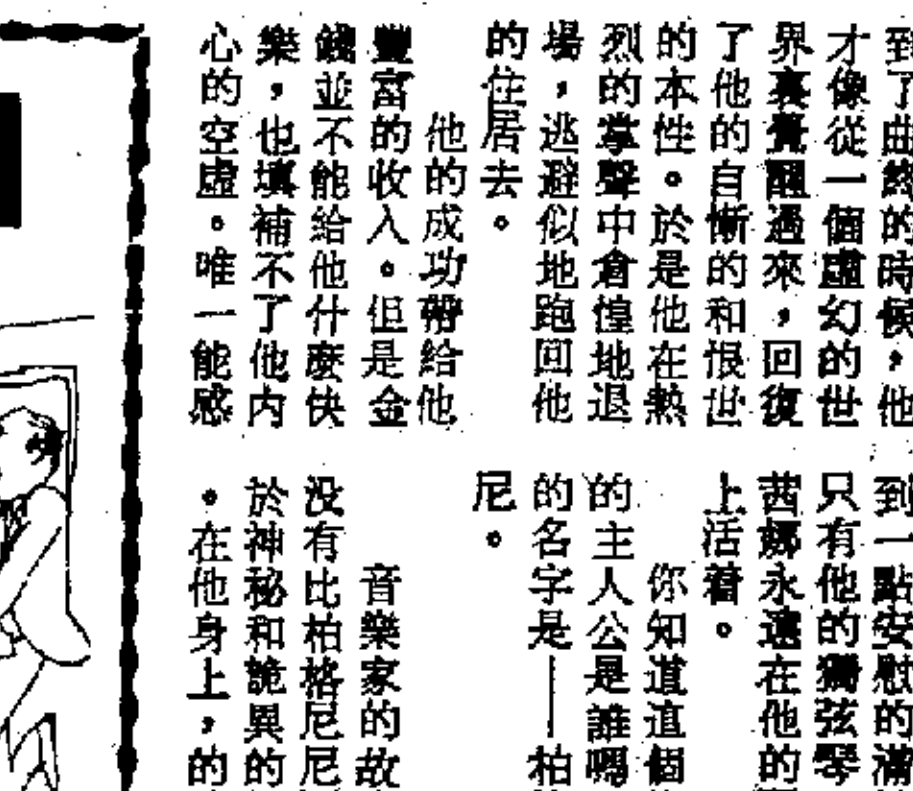 到了曲終的時候，他
才像從一個虛幻的世
界裏覺醒過來，回復
了他的自慚的和恨世
的本性。於是他在熱
烈的掌聲中倉惶地退
場，逃避似地跑回他
的住居去。
他的成功帶給他
豐富的收入。但是金
錢並不能給他什麼快
樂，也填補不了他内
心的空虛。唯一能感
到一點安慰的滿
只有他的獨弦琴
茜娜永遠在他的
上活着。
你知道這個
的主人公是誰嗎
的名字是——柏
尼。
音樂家的故
没有比柏格尼尼
於神秘和詭異的
。在他身上，的